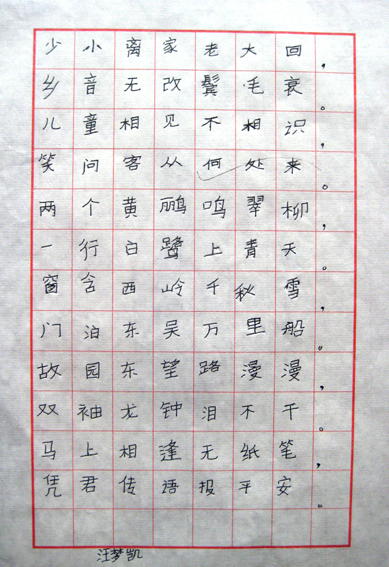 少小离家老大回，
乡音无改鬓毛衰。
儿童相见不相识，
笑问客从何处来。
两个黄鹂鸣翠柳，
一行白鹭上青天。
窗含西岭千秋雪，
门泊东吴万里船。
故园东望路漫漫，
双袖龙钟泪不干。
马上相逢无纸笔，
凭君传语报平安。
汪梦凯